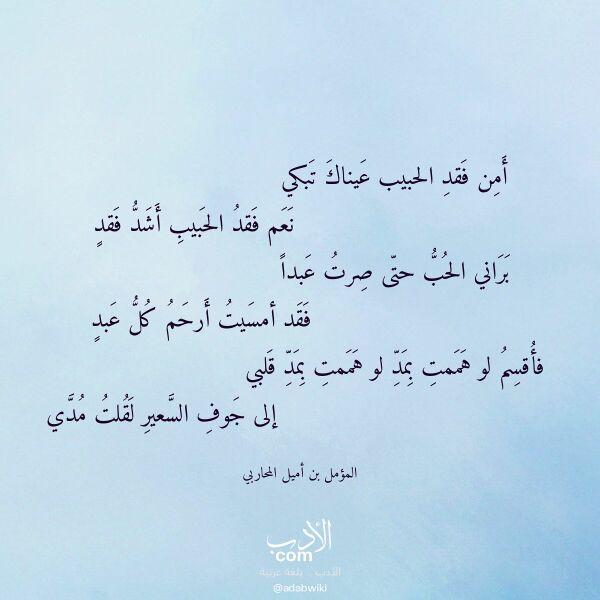 أَمِن فَقدِ الحبيب عَيناكَ تَبكي
نَعَم فَقدُ الحَبيبِ أَشَدُّ فَقدٍ
بَرَاني الحُبُّ حتّى صِرتُ عَبداً
فَقَد أمسَيتُ أَرحَمُ كُلُّ عَبدٍ
فأُقسِمُ لو هَمَمتِ بِمَدِّ لو هَمَمتِ بِمَدِّ قَلبي
إلى جَوفِ السَّعيرِ لَقُلتُ مُدَّي
المؤمل بن أميل المحاربي
الأدب
com
الأدب .. بلغة عربية
@adabwiki